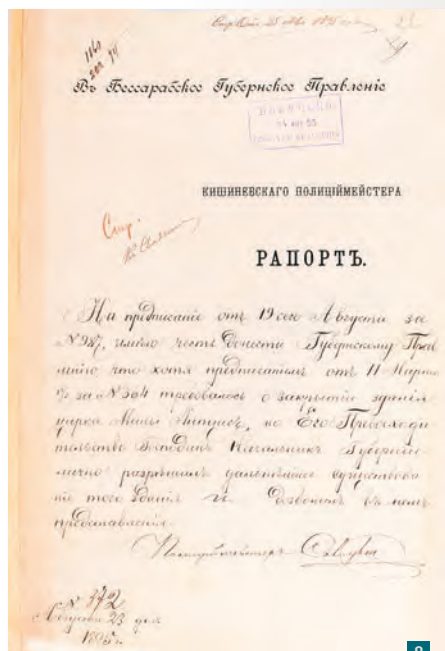 23
1160
Въ Бессарабское Губернское Правленіе
КИШИНЕВСКАГО ПОЛИЦІЙМЕЙСТЕРА
РАПОРТЪ.
На предписаніе отъ 19 сего Августа за
№ 987, имѣю честь донести Губернскому Прав
ленію что хотя предписаніемъ отъ 11 Марта
за № 304 требовалось о закрытіи зданія
цирка Мины, но Его Превосходи
тельство Господинъ Начальникъ Губерніи
лично разрѣшилъ дальнѣйшее существова
ніе того зданія и дозволилъ въ немъ
представленія.
Полиціймейстеръ
№ 372
Августа 23 дня
1895 г.